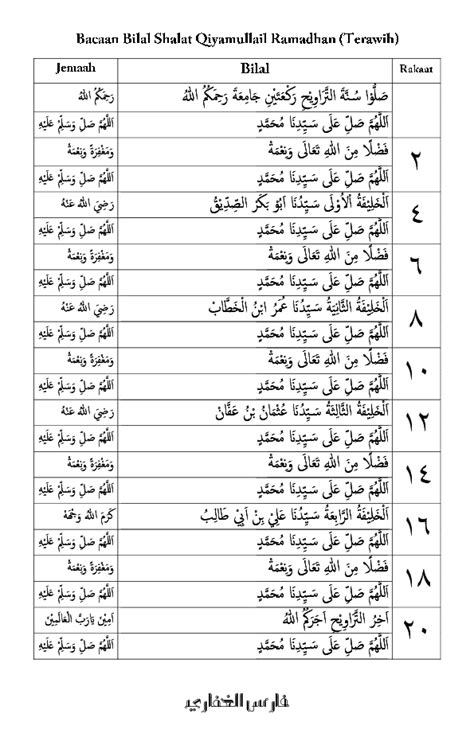 Bacaan Bilal Shalat Qiyamullail Ramadhan (Terawih)
Jemaah Bilal Rakaat
صَلُّوْا سُنَّةَ التَّرَاوِيْحِ رَكْعَتَيْنِ جَامِعَةَ رَحِمَكُمُ اللهُ رَحِمَكُمُ اللهُ
اَللّٰهُمَّ صَلِّ عَلَى سَيِّدِنَا مُحَمَّدٍ اَللّٰهُمَّ صَلِّ وَسَلِّمْ عَلَيْهِ
٢ فَضْلًا مِنَ اللهِ تَعَالَى وَنِعْمَةْ وَمَغْفِرَةً وَنِعْمَةْ
اَللّٰهُمَّ صَلِّ عَلَى سَيِّدِنَا مُحَمَّدٍ اَللّٰهُمَّ صَلِّ وَسَلِّمْ عَلَيْهِ
٤ اَلْخَلِيْفَةُ اْلاُوْلَى سَيِّدُنَا اَبُوْ بَكَر الصِّدِّيْقْ رَضِيَ اللهُ عَنْهُ
اَللّٰهُمَّ صَلِّ عَلَى سَيِّدِنَا مُحَمَّدٍ اَللّٰهُمَّ صَلِّ وَسَلِّمْ عَلَيْهِ
٦ فَضْلًا مِنَ اللهِ تَعَالَى وَنِعْمَةْ وَمَغْفِرَةً وَنِعْمَةْ
اَللّٰهُمَّ صَلِّ عَلَى سَيِّدِنَا مُحَمَّدٍ اَللّٰهُمَّ صَلِّ وَسَلِّمْ عَلَيْهِ
٨ اَلْخَلِيْفَةُ الثَّانِيَةُ سَيِّدُنَا عُمَرُ ابْنُ الْخَطَّابْ رَضِيَ اللهُ عَنْهُ
اَللّٰهُمَّ صَلِّ عَلَى سَيِّدِنَا مُحَمَّدٍ اَللّٰهُمَّ صَلِّ وَسَلِّمْ عَلَيْهِ
١٠ فَضْلًا مِنَ اللهِ تَعَالَى وَنِعْمَةْ وَمَغْفِرَةً وَنِعْمَةْ
اَللّٰهُمَّ صَلِّ عَلَى سَيِّدِنَا مُحَمَّدٍ اَللّٰهُمَّ صَلِّ وَسَلِّمْ عَلَيْهِ
١٢ اَلْخَلِيْفَةُ الثَّالِثَةُ سَيِّدُنَا عُثْمَانُ بْنُ عَفَّانْ رَضِيَ اللهُ عَنْهُ
اَللّٰهُمَّ صَلِّ عَلَى سَيِّدِنَا مُحَمَّدٍ اَللّٰهُمَّ صَلِّ وَسَلِّمْ عَلَيْهِ
١٤ فَضْلًا مِنَ اللهِ تَعَالَى وَنِعْمَةْ وَمَغْفِرَةً وَنِعْمَةْ
اَللّٰهُمَّ صَلِّ عَلَى سَيِّدِنَا مُحَمَّدٍ اَللّٰهُمَّ صَلِّ وَسَلِّمْ عَلَيْهِ
١٦ اَلْخَلِيْفَةُ الرَّابِعَةُ سَيِّدُنَا عَلِيْ بِنْ اَبِيْ طَالِبْ كَرَمَ اللهُ وَجْهَهُ
اَللّٰهُمَّ صَلِّ عَلَى سَيِّدِنَا مُحَمَّدٍ اَللّٰهُمَّ صَلِّ وَسَلِّمْ عَلَيْهِ
١٨ فَضْلًا مِنَ اللهِ تَعَالَى وَنِعْمَةْ وَمَغْفِرَةً وَنِعْمَةْ
اَللّٰهُمَّ صَلِّ عَلَى سَيِّدِنَا مُحَمَّدٍ اَللّٰهُمَّ صَلِّ وَسَلِّمْ عَلَيْهِ
٢٠ اَخِرُ التَّرَاوِيْحِ اَجَرَكُمُ اللهُ اَمِيْن يَارَبَّ الْعَالَمِيْنَ
اَللّٰهُمَّ صَلِّ عَلَى سَيِّدِنَا مُحَمَّدٍ اَللّٰهُمَّ صَلِّ وَسَلِّمْ عَلَيْهِ
فارس الغفاري